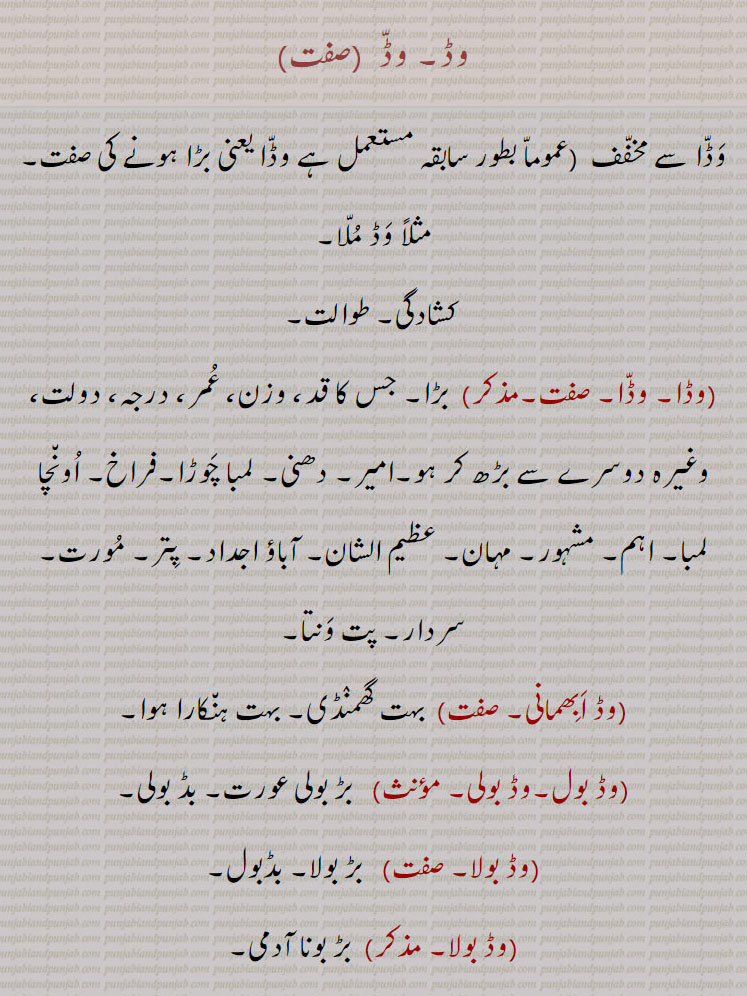 وڈ۔ وڈّ (صفت)
وَڈّا سے مخفّف (عموماّ بطور سابقہ مستعمل ہے وڈّا یعنی بڑا ہونے کی صفت۔
مثلاً وَڈ مُلّا۔
کشادگی۔ طوالت۔
(وڈا۔ وڈّا۔ صفت۔مذکر) بڑا۔ جس کا قد، وزن، عُمر، درجہ، دولت،
وغیرہ دوسرے سے بڑھ کر ہو۔امیر۔ دھنی۔ لمبا چَوڑا۔فراخ۔ اُونّچا
لمبا۔ اہم۔ مشہور۔ مہان۔ عظیم الشان۔ آباؤ اجداد۔ پِتر۔ مُورت۔
سردار۔ پت وَنتا۔
(وڈ اَبِھمانی۔ صفت) بہت گھمنْڈی۔ بہت ہنّکارا ہوا۔
(وڈ بول۔وڈ بولی۔ مؤنث) بڑ بولی عورت۔ بڈ بولی۔
(وڈ بولا۔ صفت) بڑ بولا۔ بڈبول۔
(وڈ بولا۔ مذکر) بڑ بونا آدمی۔